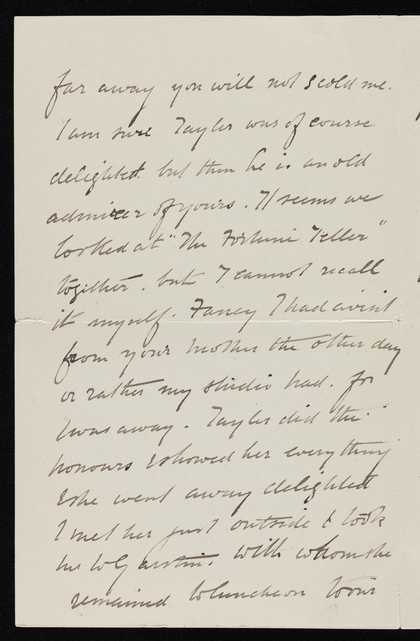 far away you will not scold me.
I am sure Tayler was of course
delighted. but then he is an old
admirer of yours. It seems we
looked at "The Fortune Teller"
together. but I cannot recall
it myself. Fancy I had a visit
from your mother the other day
or rather my studio had. for
I was away. Tayler did the
honours & showed her everything
& she went away delighted
I met her just outside & took
her to with whom she
remained to luncheon to our